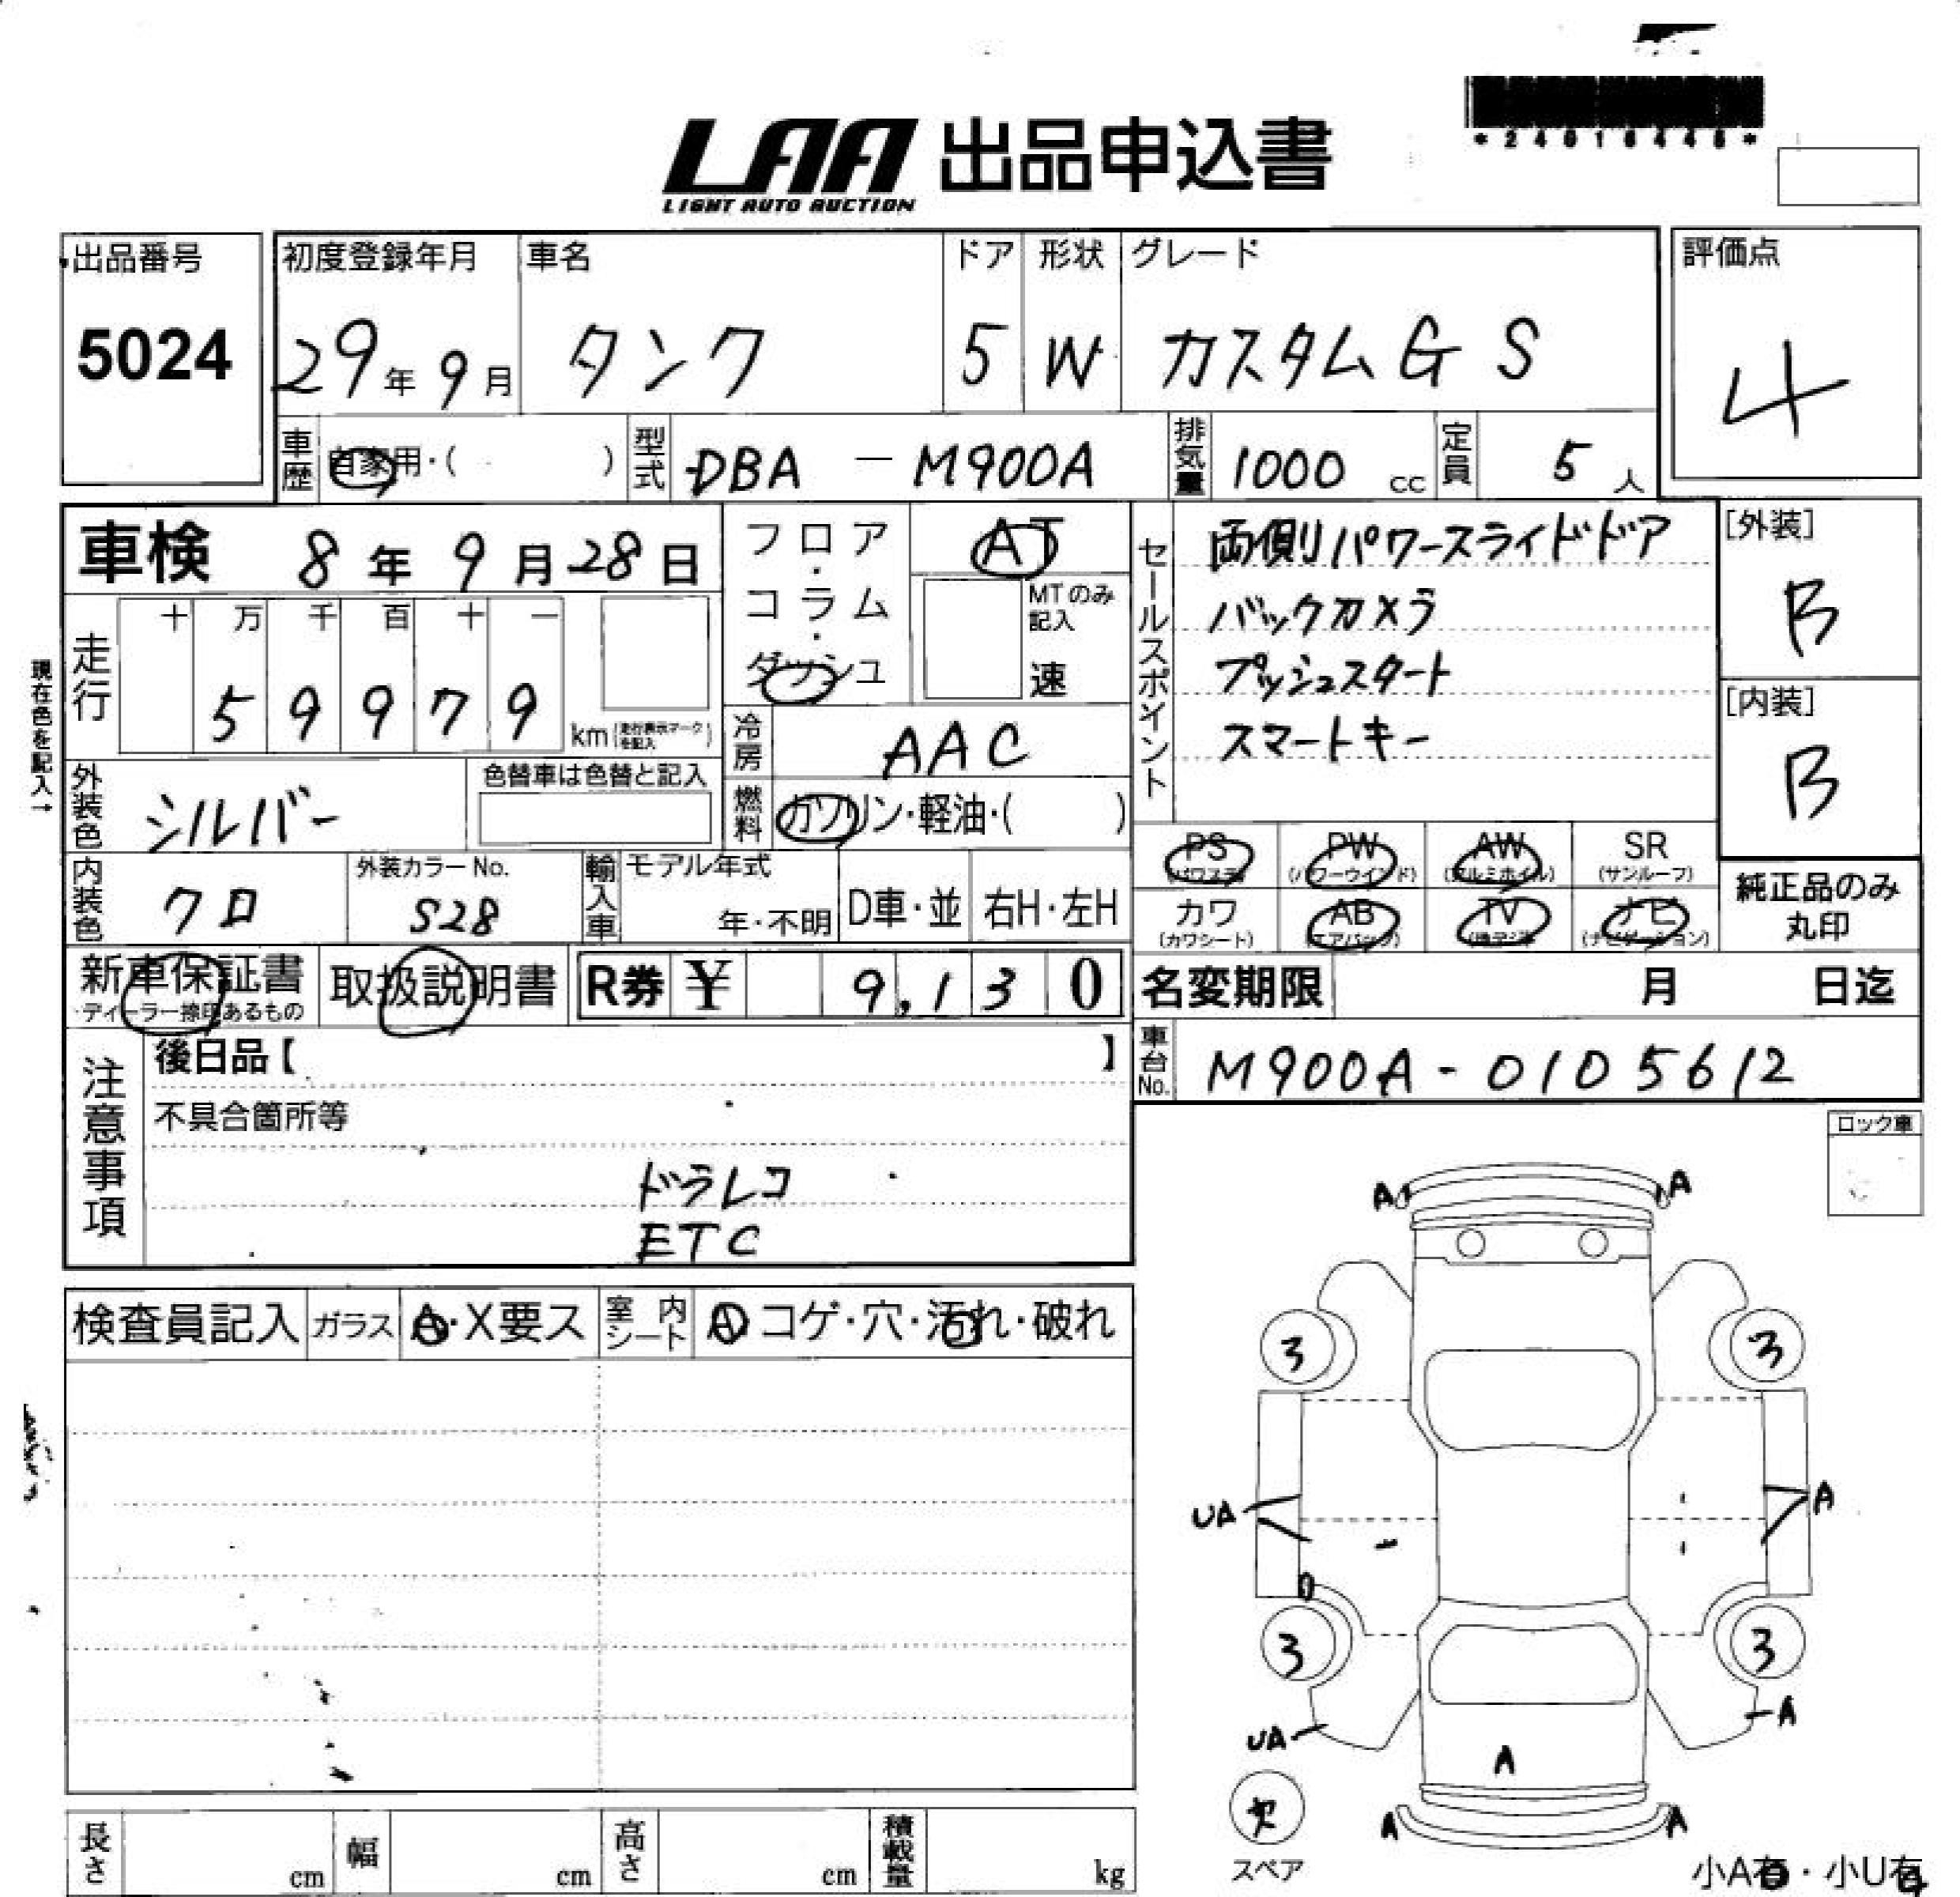 *24016446*
LAA 出品申込書
LIGHT AUTO AUCTION
出品番号 初度登録年月 車名 ドア 形状 グレード 評価点
5024 29年 9月 タンク 5 W カスタムG S 4
車歴 自家用・( ) 型式 DBA - M900A 排気量 1000 cc 定員 5 人
車検 8年 9月 28日 フロア・コラム・ダッシュ AT
MTのみ記入 速
セールスポイント
両側パワースライドドア
バックカメラ
プッシュスタート
スマートキー
[外装] B
[内装] B
現在色を記入→
走行 十 万 千 百 十 一
5 9 9 7 9 km(走行表示マークを記入)
冷房 AAC
外装色 シルバー 色替車は色替と記入 燃料 ガソリン・軽油・( )
PS(パワステ) PW(パワーウインド) AW(アルミホイル) SR(サンルーフ)
カワ(カワシート) AB(エアバック) TV(地デジ) ナビ(ナビゲーション) 純正品のみ丸印
内装色 クロ 外装カラーNo. S28 輸入車 モデル年式 年・不明 D車・並 右H・左H
新車保証書 ディーラー捺印あるもの 取扱説明書 R券 ¥ 9,130 名変期限 月 日迄
車台No. M900A-0105612
注意事項 後日品【 】
不具合箇所等
ドラレコ
ETC
ロック車
検査員記入 ガラス A・X要ス 室内シート A コゲ・穴・汚れ・破れ
A A
3 3
UA A
3 3
UA A
A
A A
欠
スペア
長さ cm 幅 cm 高さ cm 積載量 kg
小A有・小U有